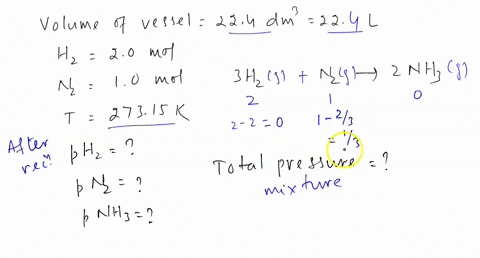 Volume of vessel = 22.4 dm³ = 22.4 L
H₂ = 2.0 mol
N₂ = 1.0 mol
T = 273.15 K
3H₂(g) + N₂(g) → 2 NH₃(g)
2 1 0
2-2=0 1-2/3
= 1/3
After recⁿ
pH₂ = ?
pN₂ = ?
pNH₃ = ?
Total pressure = ?
mixture